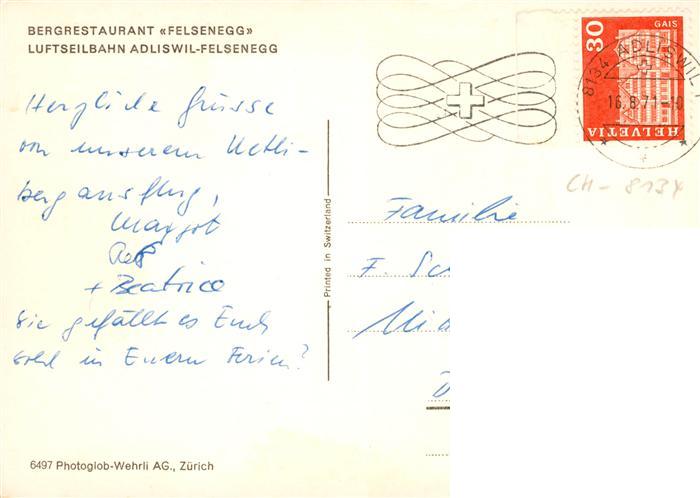 BERGRESTAURANT «FELSENEGG»
LUFTSEILBAHN ADLISWIL-FELSENEGG
Herzliche Grüsse
von unserem Uetli-
bergausflug,
Margot
+ Beatrice
Wie gefällt es Euch
wohl in Euern Ferien?
6497 Photoglob-Wehrli AG., Zürich
Printed in Switzerland
30
GAIS
HELVETIA
8134 ADLISWIL 1
16.8.71-10
CH - 8134
Familie
F. Sc